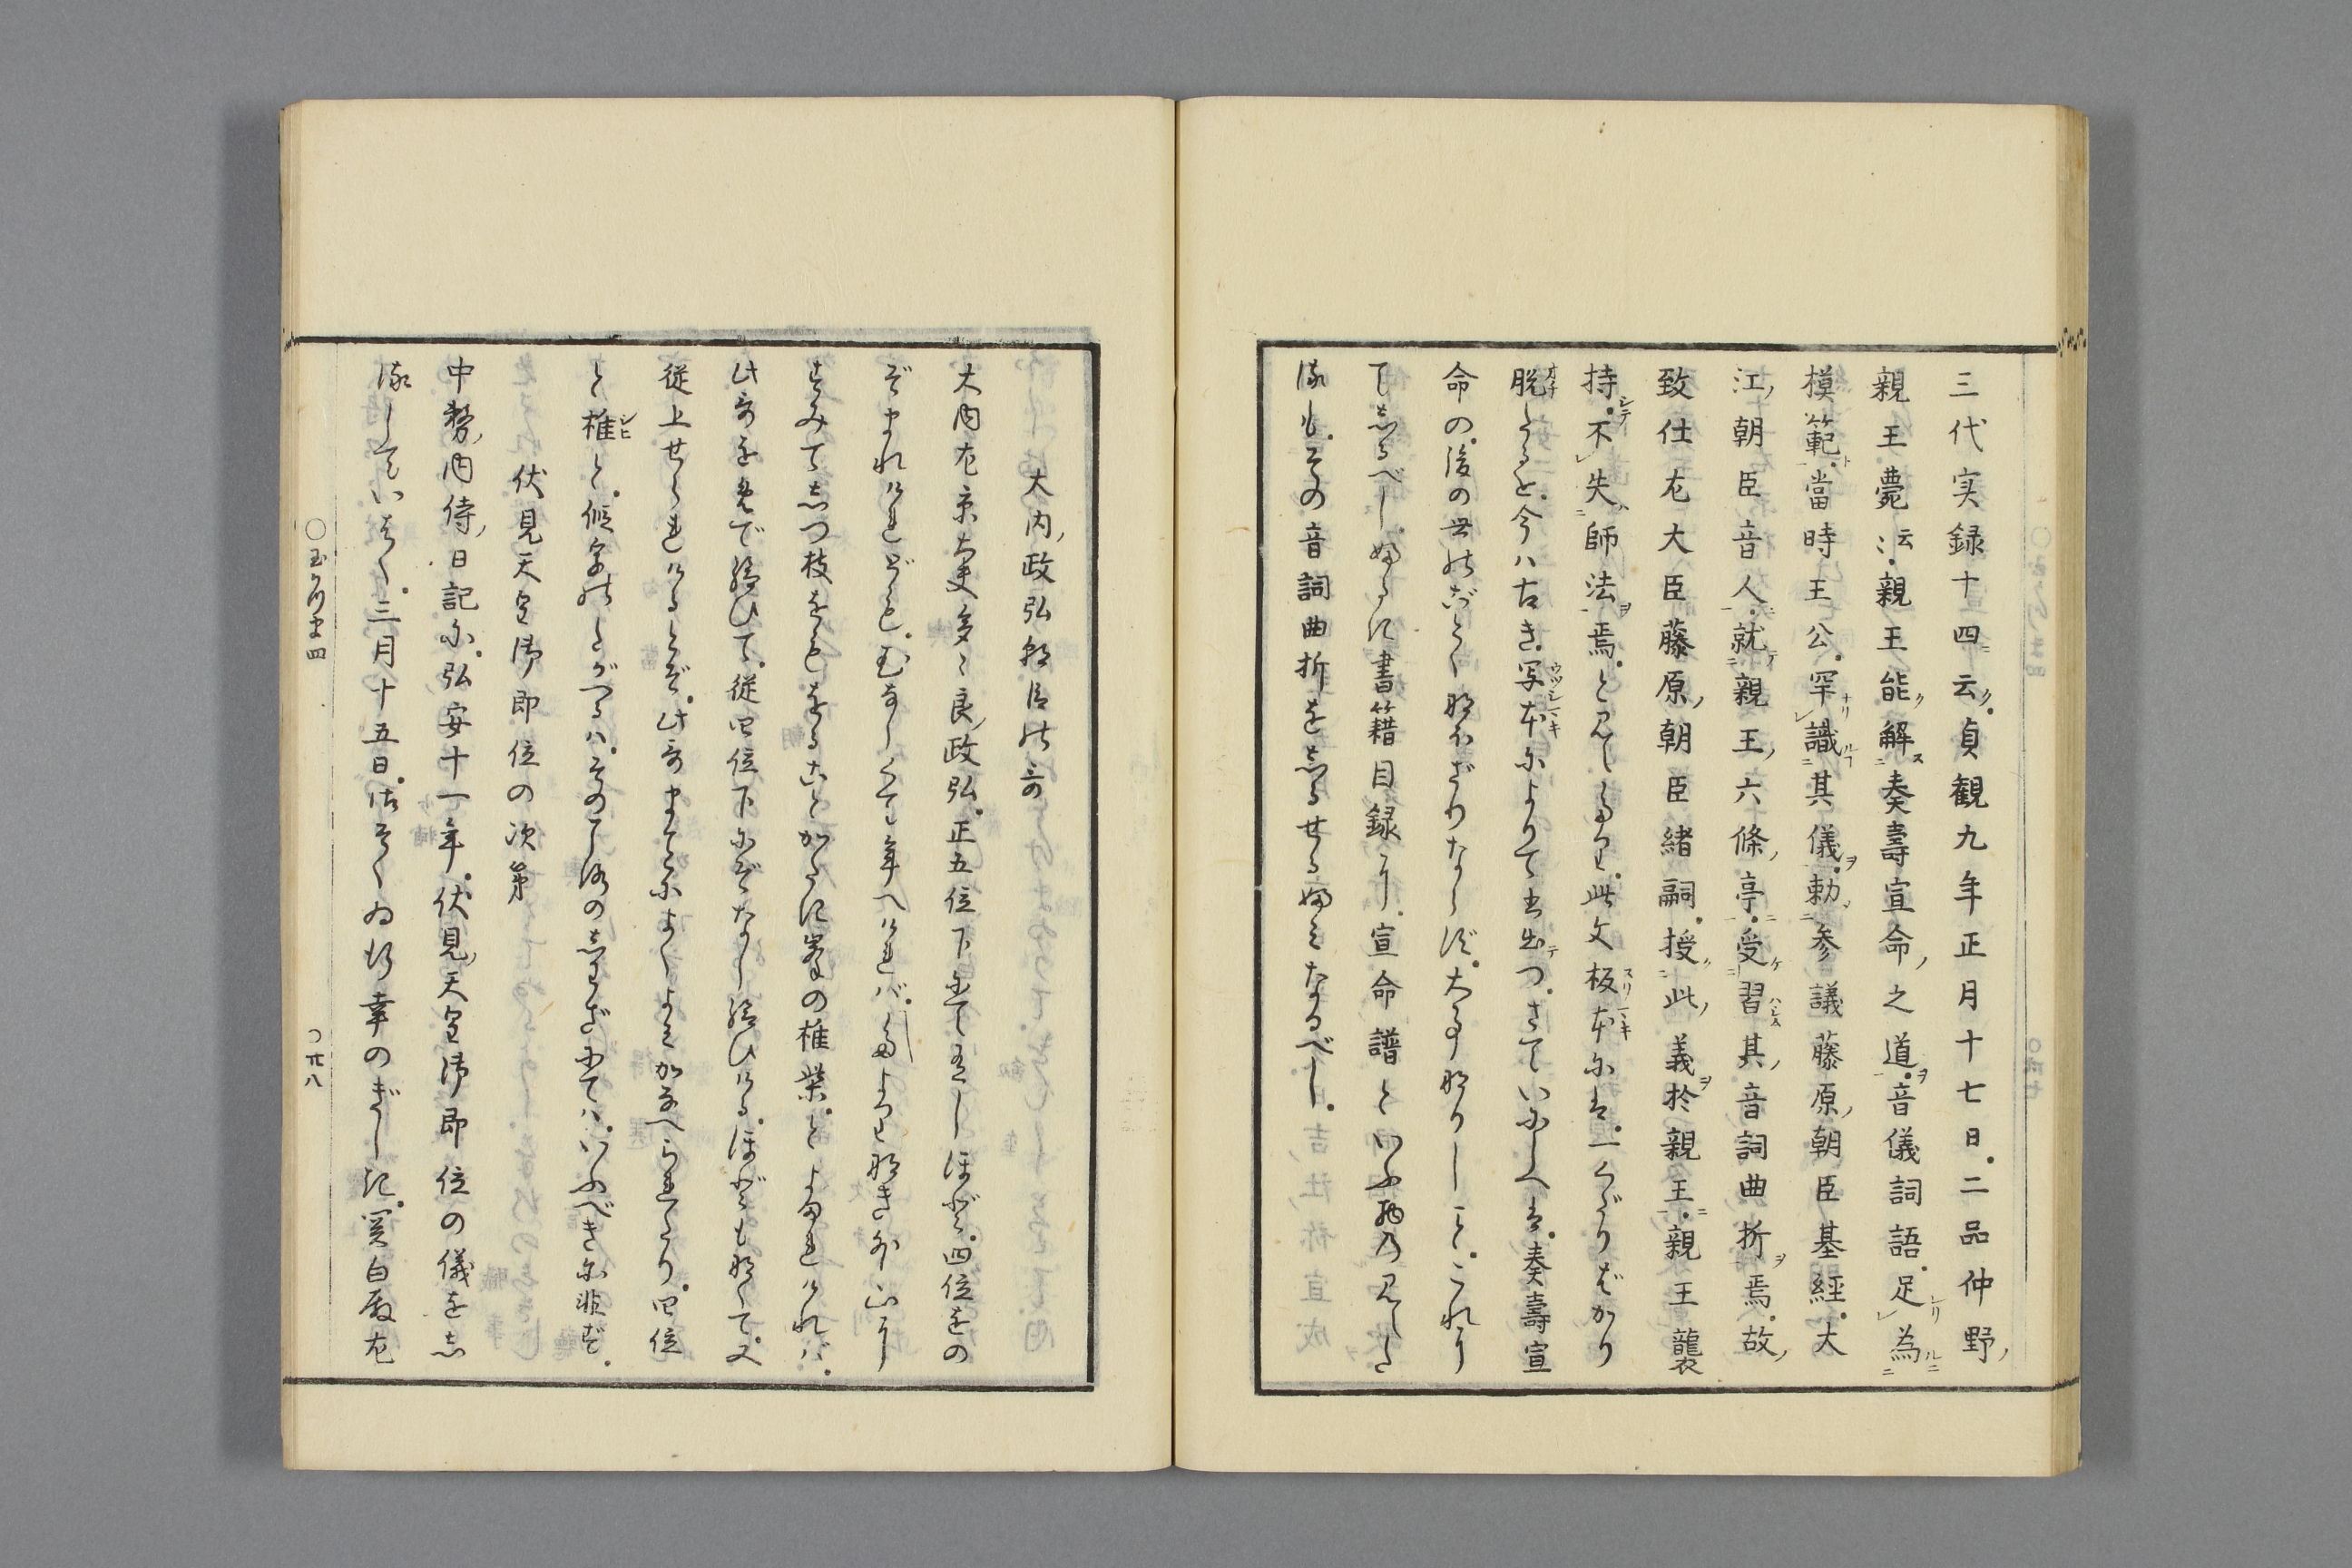 三代実録十四云。貞観九年正月十七日。二品仲野
親王薨云云。親王能解奏壽宣命之道。音儀詞語。足為
模範。當時王公。罕識其儀。勅参議藤原朝臣基経。大
江朝臣音人。就親王六條亭。受習其音詞曲折焉。故
致仕左大臣藤原朝臣緒嗣。授此義於親王。親王襲
持。不失師法焉。と見えたり。此文板本には。一くだりばかり
脱たるを。今ハ古き写本によりて出つ。さていにしへは。奏壽宣
命の。後の世のごとく
てしるべし。書籍目録に。宣命譜といふ物の見えた
るも。その音詞曲折をしるせるふみなるべし。
大内政弘朝臣の哥
大内左京大夫多々良政弘。正五位下にて有しほど。四位をの
ぞまれけれども。むなしくて年へければ。
すみてしつ枝をもをることかたに峯の椎柴。とよまれければ。
此哥をめで給ひて。従四位下にぞなし給ひける。ほども
従上せられけるとぞ。此哥まことによくよみかなへられたり。四位
と椎と。仮字のたがへるハ。そのころのしわざにてハ。いふべきに非ず。
伏見天皇御即位の次第
中務内侍日記に。弘安十一年。伏見天皇御即位の儀をし
るしていはく。三月十五日。行幸のぎしき。関白殿左
○玉かつま四
○廿八